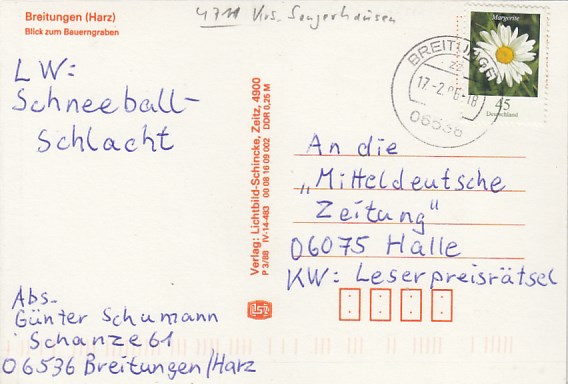 Breitungen (Harz)
Blick zum Bauerngraben
4711 Krs. Sangerhausen
Margerite
45
Deutschland
BREITUNGEN
17.-2.06-18
06536
LW:
Schneeball-
Schlacht
Verlag: Lichtbild-Schincke, Zeitz, 4900
P 3/88 IV-14-483 00 08 16 09 002 DDR 0,25 M
An die
„Mitteldeutsche
Zeitung"
06075 Halle
KW: Leserpreisrätsel
Abs.
Günter Schumann
Schanze 61
06536 Breitungen/Harz